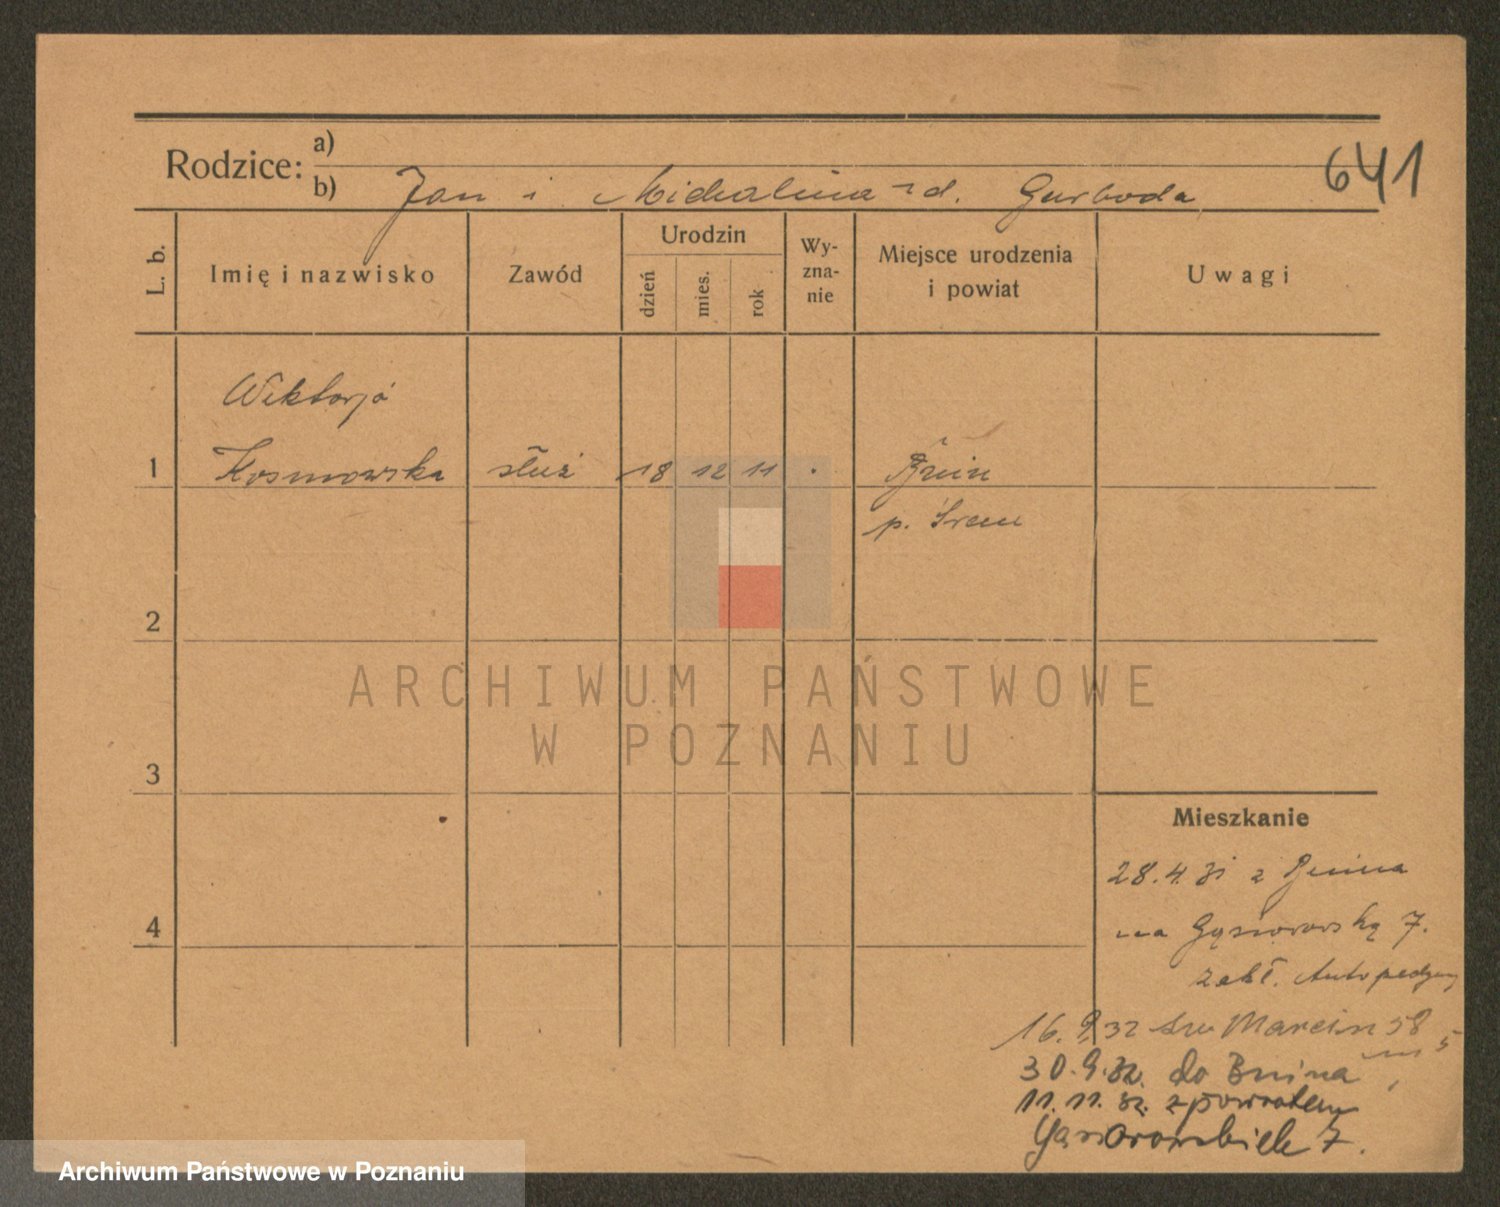 641
Rodzice: a)
b) Jan i Michalina zd. Garboda
L. b. Imię i nazwisko Zawód Urodzin dzień mies. rok Wy-zna-nie Miejsce urodzenia i powiat Uwagi
Wiktorja
1 Kosmowska służ 18 12 11 . Bnin
p. Śrem
2
ARCHIWUM PAŃSTWOWE
W POZNANIU
3
Mieszkanie
28.4.31 z Bnina
4
na Gąsiorowską 7.
zakł.
16.9.32 św Marcin 58
m 5
30.9.32. do Bnina
11.11.32. z powrotem
Gąsiorowskich 7.
Archiwum Państwowe w Poznaniu